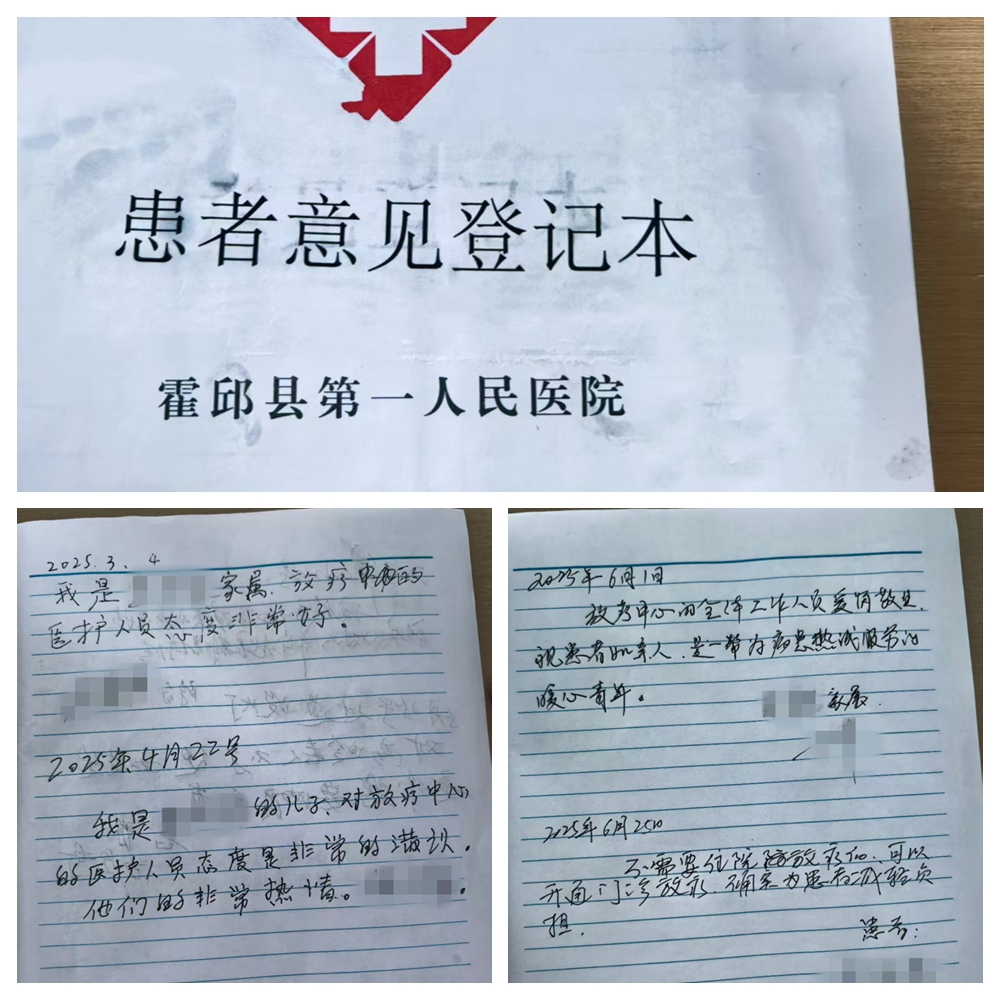 患者意见登记本
霍邱县第一人民医院
2025.3.4
我是 家属,放疗中心的
医护人员态度非常好。
2025年4月22号
我是 的儿子,对放疗中心
的医护人员态度是非常的满认.
他们的非常热情。
2025年6月1日
放疗中心的全体工作人员爱岗敬业.
视患者如亲人.是一帮为病患热诚服务的
暖心青年。
家属.
2025年6月25日
不需要住院 放疗的,可以
开通门诊放疗,确实为患者减轻负
担.
患者: